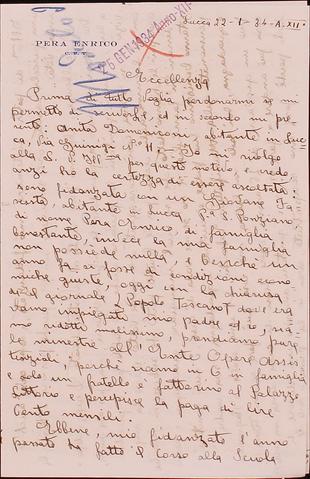 Lucca 22-1-34-A. XII°
PERA ENRICO
LUCCA
26 GEN. 1934 Anno XII
Eccellenza
Prima di tutto voglia perdonarmi se mi
permetto di scriverle, ed in secondo mi pre-
sento: Anita Domeniconi, abitante in Luc-
ca, Via Guinigi N° 11 – Io mi rivolgo
alla S. V. Ill.ma per questo motivo, e vedo,
anzi ho la certezza di essere ascoltata:
sono fidanzata con un Giovane Fa-
scista, abitante in Lucca P.za S. Ponziano
di nome Pera Enrico, di famiglia
benestante, invece la mia famiglia
non possiede nulla, e benché un
anno fa si fosse di condizioni econo-
miche giuste, oggi con la chiusura
del giornale "Popolo Toscano" dove era-
vamo impiegati mio padre ed io, sia-
mo ridotti malissimo, prendiamo pure
le minestre all' Ente Opere Assis-
tenziali, perché siamo in 6 in famiglia
e solo un fratello è fattorino al Palazzo
Littorio e percepisce la paga di lire
Cento mensili.
Ebbene, mio fidanzato l'anno
passato ha fatto il corso alla Scuola